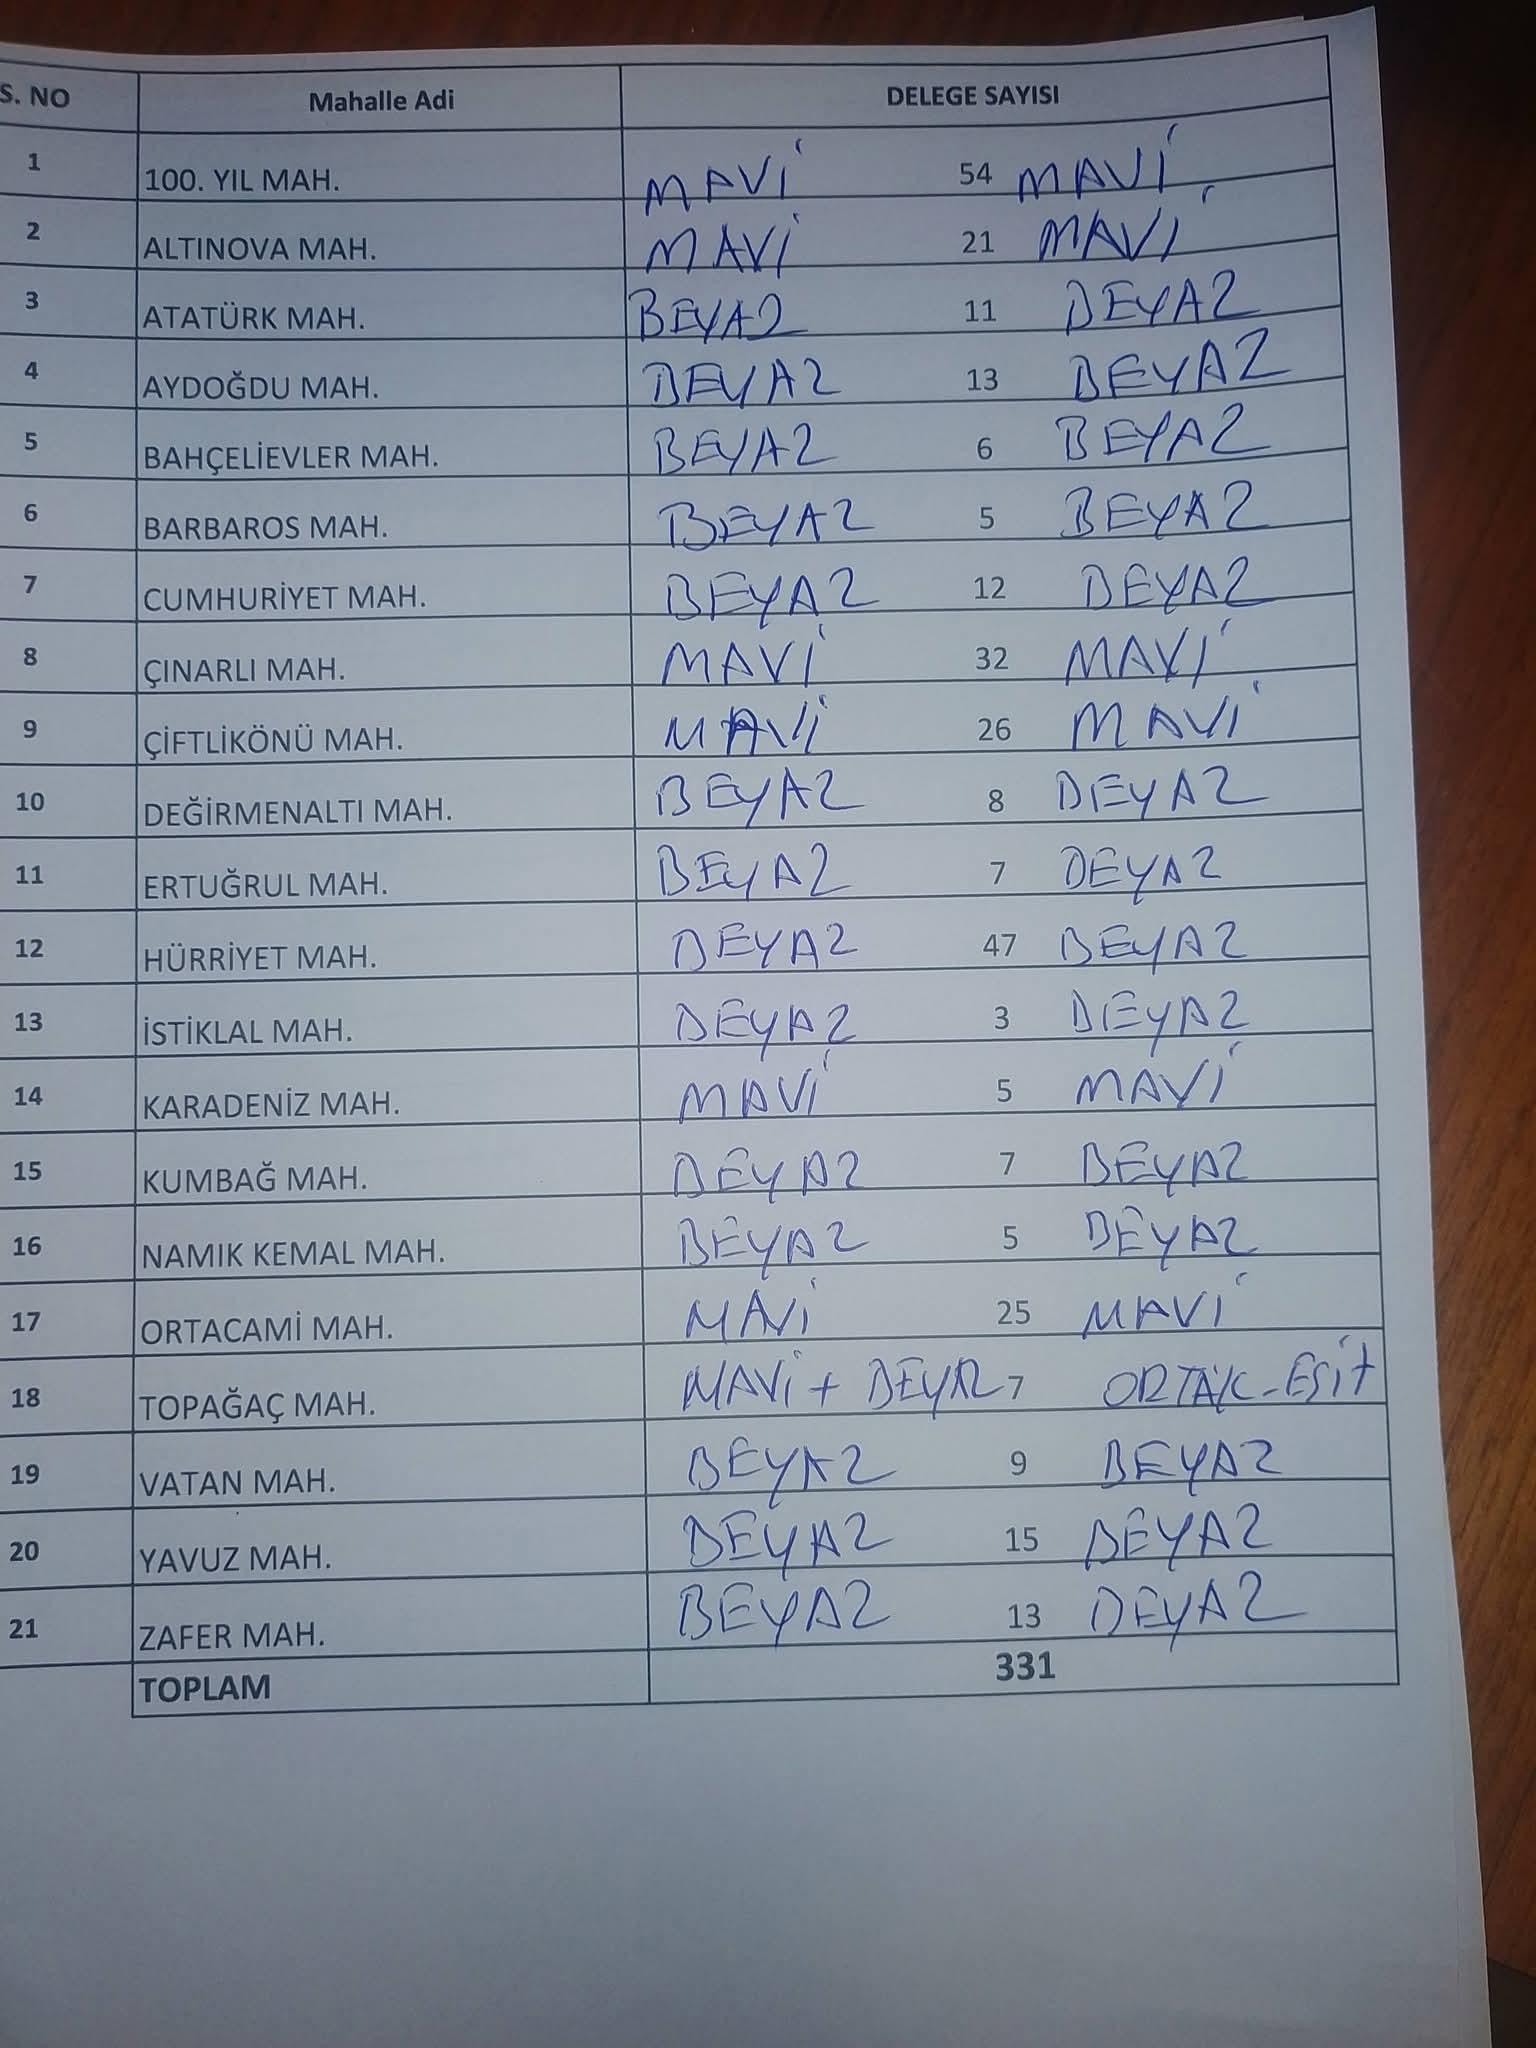 S. NO Mahalle Adi DELEGE SAYISI
1 100. YIL MAH. MAVİ 54 MAVİ
2 ALTINOVA MAH. MAVİ 21 MAVİ
3 ATATÜRK MAH. BEYAZ 11 BEYAZ
4 AYDOĞDU MAH. BEYAZ 13 BEYAZ
5 BAHÇELİEVLER MAH. BEYAZ 6 BEYAZ
6 BARBAROS MAH. BEYAZ 5 BEYAZ
7 CUMHURİYET MAH. BEYAZ 12 BEYAZ
8 ÇINARLI MAH. MAVİ 32 MAVİ
9 ÇİFTLİKÖNÜ MAH. MAVİ 26 MAVİ
10 DEĞİRMENALTI MAH. BEYAZ 8 BEYAZ
11 ERTUĞRUL MAH. BEYAZ 7 BEYAZ
12 HÜRRİYET MAH. BEYAZ 47 BEYAZ
13 İSTİKLAL MAH. BEYAZ 3 BEYAZ
14 KARADENİZ MAH. MAVİ 5 MAVİ
15 KUMBAĞ MAH. BEYAZ 7 BEYAZ
16 NAMIK KEMAL MAH. BEYAZ 5 BEYAZ
17 ORTACAMİ MAH. MAVİ 25 MAVİ
18 TOPAĞAÇ MAH. MAVİ + BEYAZ 7 ORTAK - EŞİT
19 VATAN MAH. BEYAZ 9 BEYAZ
20 YAVUZ MAH. BEYAZ 15 BEYAZ
21 ZAFER MAH. BEYAZ 13 BEYAZ
TOPLAM 331